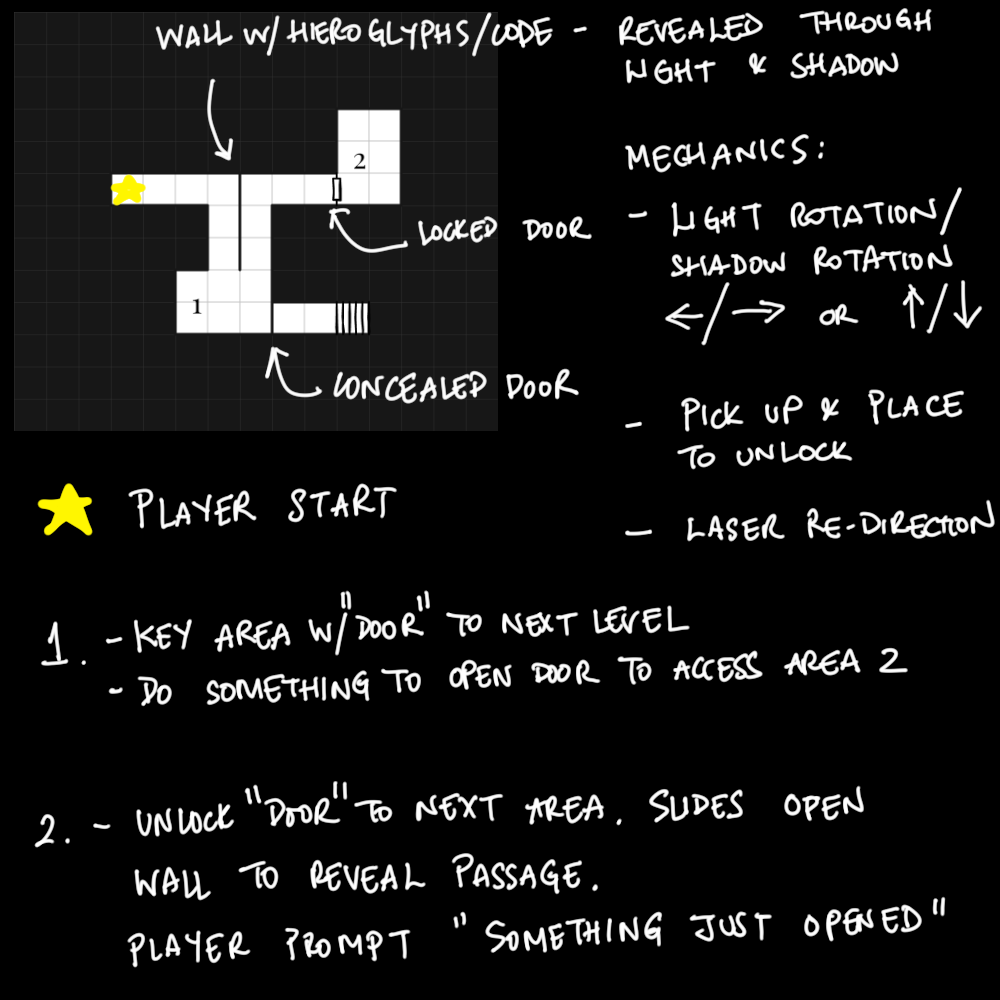 WALL W/ HIEROGLYPHS/CODE - REVEALED THROUGH
LIGHT & SHADOW
2
LOCKED DOOR
1
CONCEALED DOOR
MECHANICS:
- LIGHT ROTATION/
SHADOW ROTATION
←/→ OR ↑/↓
- PICK UP & PLACE
TO UNLOCK
- LASER RE-DIRECTION
PLAYER START
1. - KEY AREA W/ "DOOR" TO NEXT LEVEL
- DO SOMETHING TO OPEN DOOR TO ACCESS AREA 2
2. - UNLOCK "DOOR" TO NEXT AREA. SLIDES OPEN
WALL TO REVEAL PASSAGE.
PLAYER PROMPT "SOMETHING JUST OPENED"